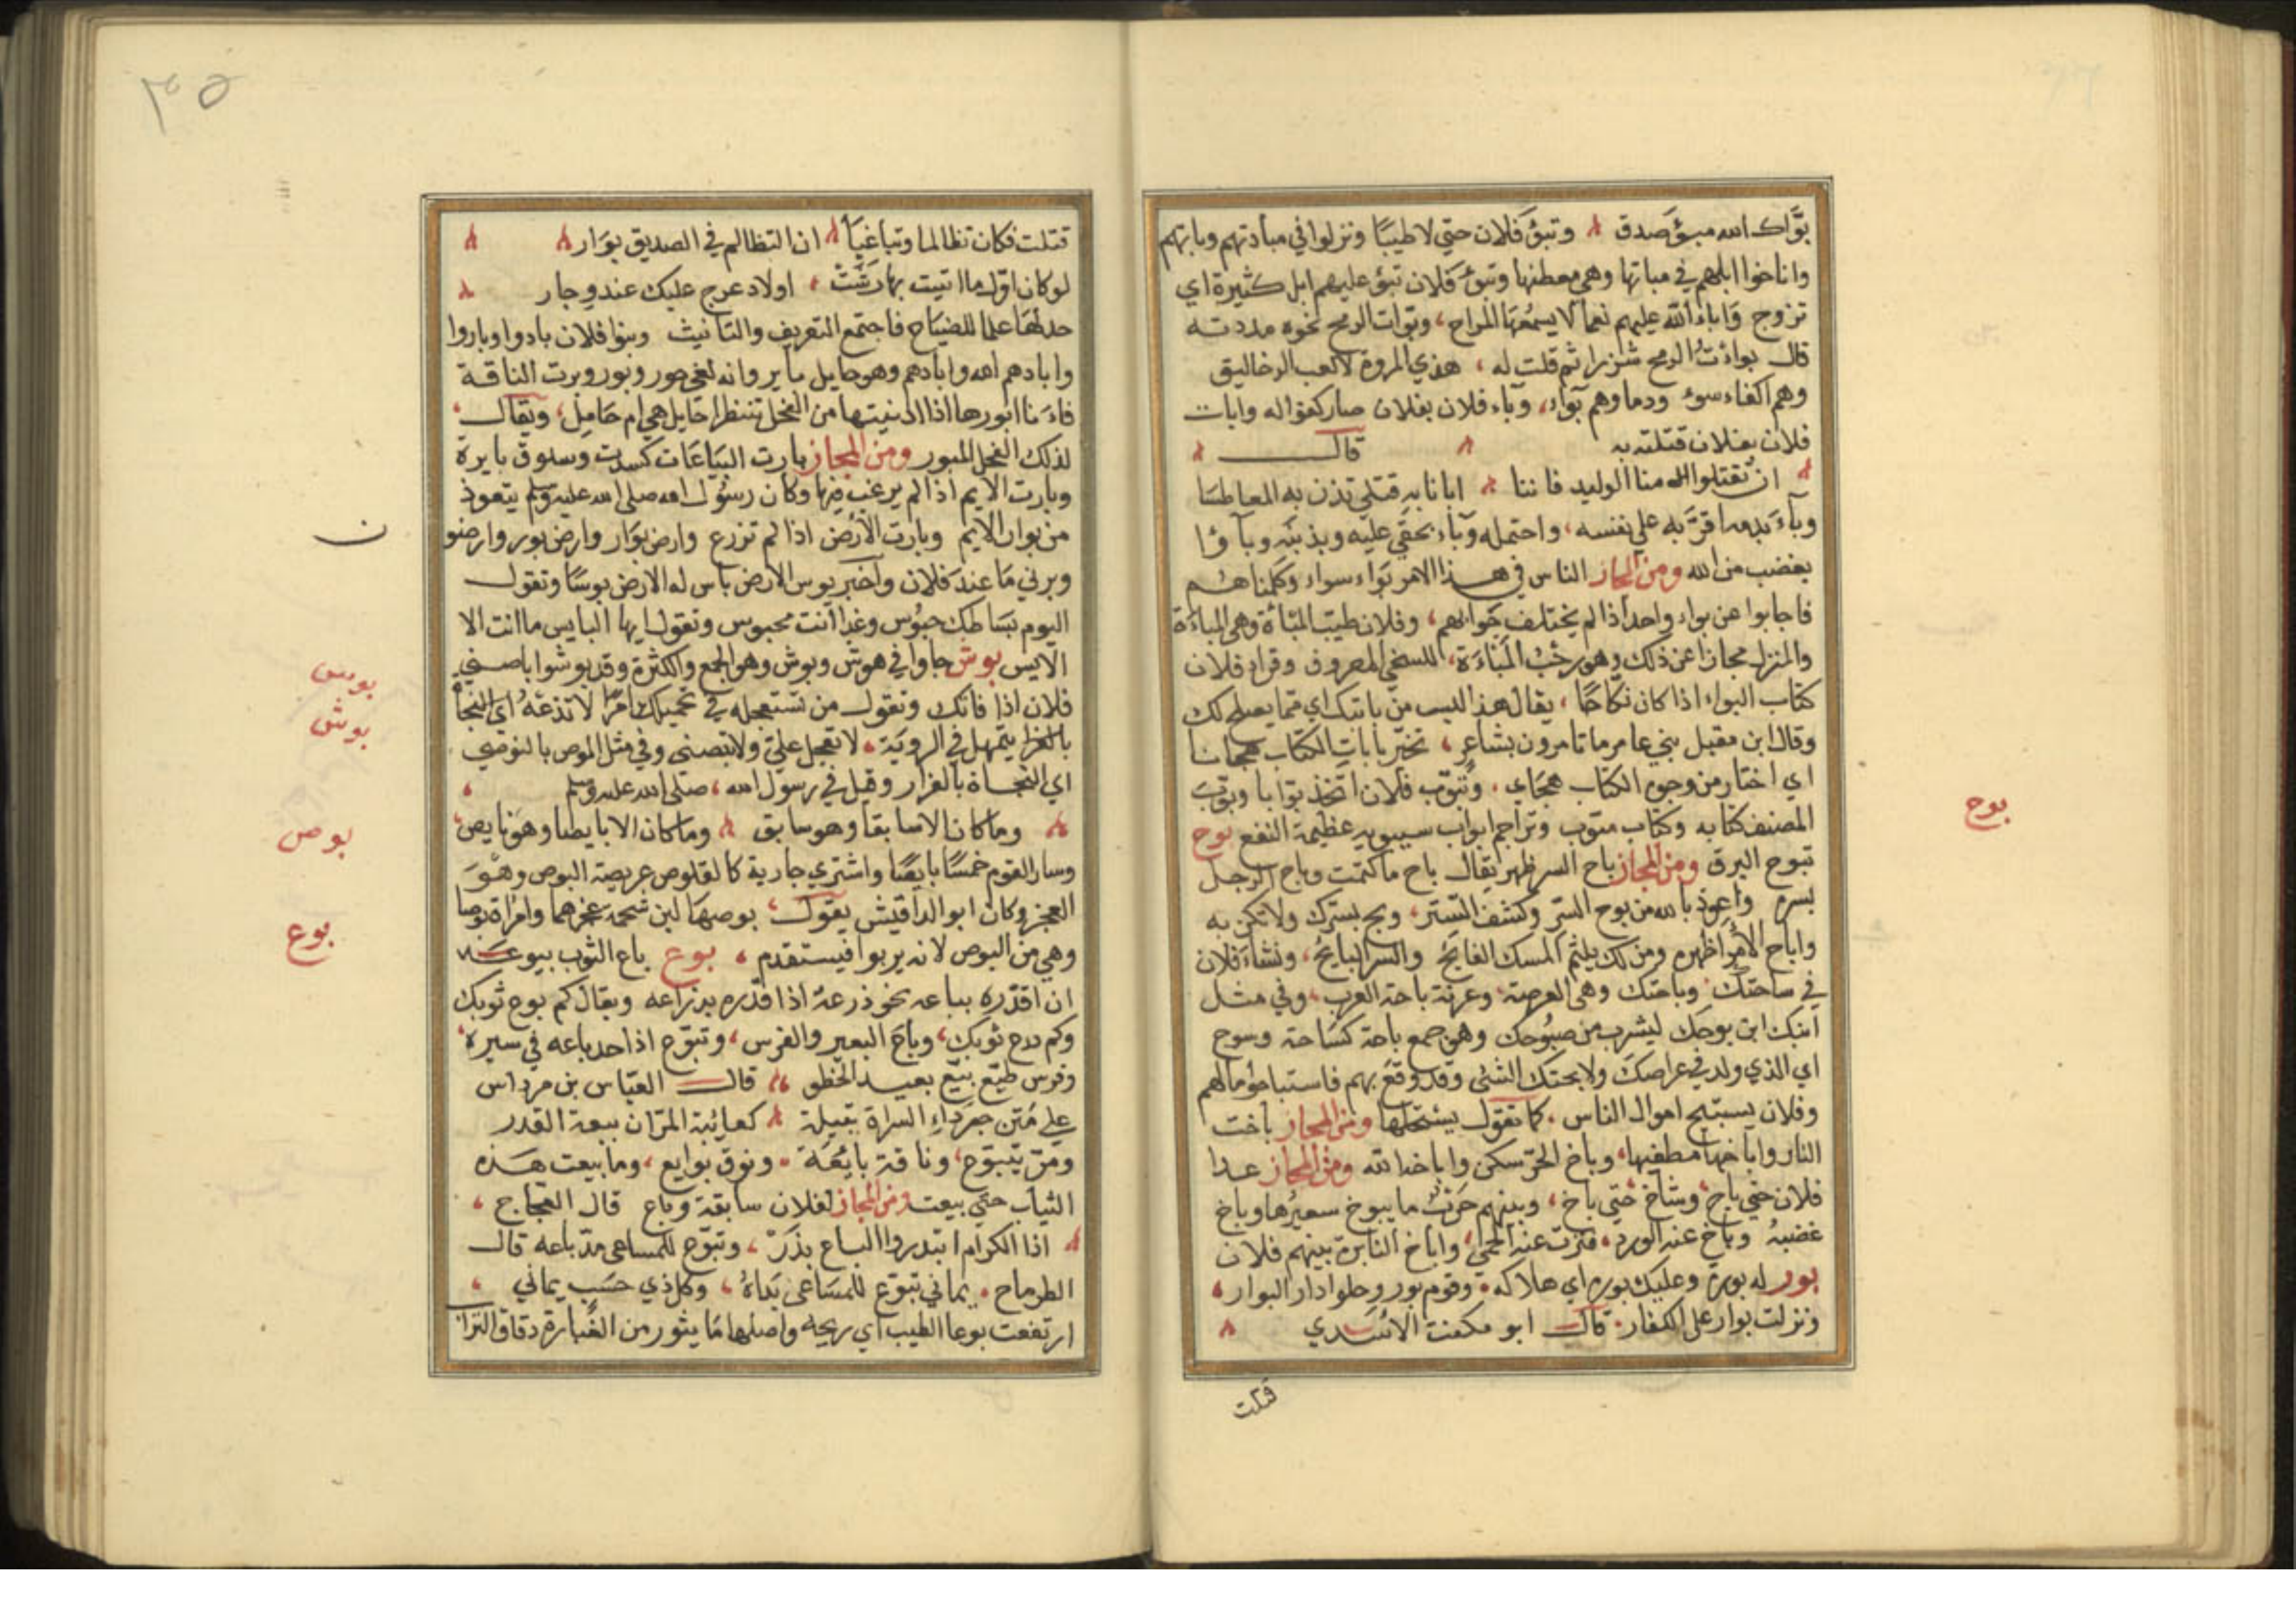 بوّاك الله مبوّؤ صدق وتبوّؤ فلان حتي لا طيبًا ونزلوا في مبادتهم وباتهم
واناخوا ابلهم في مباتها وهي معطنها وتبوّؤ فلان تبوّؤ عليهم ابل كثيرة اي
تزوج وَاباءَ الله عليهم نعما لا يسمعُها المراح، وبوّات الرمح نحوه مددته
قال بواءتُ الرمح شزرا ثم قلت له ، هذي المروة لا لعب الزخاليق
وهم اكفاء سوء ودماوهم بَوآء، وبآء فلان بفلان صار كفؤا له وابات
فلان بفلان قتلته به قال
ان تقتلوا منا الوليد فاننا ابانا به قتلي تذن به المعاطسا
وبآء بدمه اقرّ به علي نفسه، واحتمله وبآء بحقي عليه وبذنبه وبآؤا
بغضب من الله ومن المجاز الناس في هذا الامر بواء سواء وكلمناهم
فاجابوا عن بواء واحد اذا لم يختلف جوابهم، وفلان طيب المبأة وهي المباءة
والمنزل مجازا عن ذلك وهو رحبُ المباءَة، للسخي المعروف وقراه فلان
كتاب البواء اذا كان نكاحًا ، يقال هذا ليس من بابتك اي مما يصلح لك
وقال ابن مقبل بني عامر ما تامرون بشاعر، تخيّر بابات الكتاب هجانا
اي اختار من وجوه الكتاب هجاي. وتبوّب فلان اتخذ بوّابا وبوّب
المصنف كتابه وكتاب مبوّب وتراجم ابواب سيبويه عظيمة النفع بوح
تبوح البرق ومن المجاز باح السر ظهر يقال باح ما كتمت وباح الرجل
بسره واعوذ بالله من بوح السّر وكشف التستر، وبح بسترك ولا تكن به
واباح الامر اظهره ومن لك يلثم المسك الفايح والسر البايح، ونشأ فلان
في ساحتك وباحتك وهي العرصة وعرفة باحة العرب وفي مثل
ابنك ابن بوحك ليشرب من صبوحك وهو جمع باحة كساحة وسوح
اي الذي ولد في عراصك ولا بحتك الشئ وقد وقع بهم فاستباحوا مالهم
وفلان يستبيح اموال الناس. كما تقول يستحلها ومن المجاز باخت
النار واباخها مطفيها، وباخ الحرّ سكن واباخه الله ومن المجاز عدا
فلان حتي باخ وشاخ حتي باخ، وبينهم حرب ما يبوخ سعيرُها وباخ
غضبهُ وباخ عنه الورد، فترت عنه الحمي، واباخ النايرة بينهم فلان
بور له بوره وعليك بوره اي هلاكه. وقوم بور وحلوا دار البوار
ونزلت بوار علي الكفار. قال ابو مكعت الاسدي
قتلت
بوح
٣٥
قتلت فكان تظالما وتباغيًا ان التظالم في الصديق بوَار
لوكان اوّل ما اتيت بهارشتْ ، اولاد عرج عليك عند وجار
جعلها علما للضياح فاجتمع التعريف والتانيث وبنوا فلان بادوا وباروا
وابادهم الله وابادهم وهو حايل باير وانه لفي حور وبور وبرت الناقة
فاَنا ابورها اذا ادنيتها من الفحل تنظر احايل هي ام حَامِل، ويقال
لذلك الفحل المبور ومن المجاز بارت البياعات كسدت وسوق بايرة
وبارت الايم اذا لم يرغب فيها وكان رسول الله صلي الله عليه وسلم يتعوذ
من بوار الايم وبارت الأرض اذا لم تزرع وارض بوار وارض بور وارضو
ن
وبرني مَا عند فلان وآخبر يوس الارض باس له الارض بوسًا وتقول
اليوم بساطك حبوس وغدا انت محبوس وتقول ايها البايس ما انت الا
الايس بوش جاوا في هوش وبوش وهو الجمع والكثرة وقد بوشوا باصني
فلان اذا فاتك وتقول من تستعجله في تحميلك امرًا لا تدعهُ اي النجا
بالفرا يتمهل في الروية، لا تعجل عليّ ولا تبصني وفي مثل الموص بالنوصي
اي النجاة بالفرار وقيل في رسول الله، صلي الله عليه وسلم
وما كان الا سابقا وهو سابق وما كان الا بايصا وهو بايص
وسار القوم خمسًا بايصًا واشتري جارية كالقلوص عريضة البوص وهو
العجز وكان ابو الداقيش يقول، بوصها لين شحمة عجزها وامرأة بوصا
وهي من البوص لانه يربوا فيستقدم ، بوع باع الثوب يبوعه
ان اقدّره بباعه نحو ذرعه اذا قدّره بذراعه ويقال كم بوع ثوبك
وكم ذرع ثوبك، وباعَ البعير والفرس، وتبوّع اذا مد باعه في سيره
وفرس طيّع بيّع بعيد الخطو ، قال العبّاس بن مرداس
علي مَتن جرداء السراة نبيلة كعالية المرّان بيعة القدر
ومرّ يتبوّع، وناقة بايعَة ، ونوق بوايع، وما بيعت هذه
الثياب حتي بيعت ومن المجاز لفلان سابقة وباع قال العجاج ،
اذا الكرام ابتدروا الباع بدَرَ ، وتبوّع للمساعي مدّ باعه قال
الطرماح ، يماني تبوّع للمسَاعي يَداهُ ، وكل ذي حسَب يماني ،
ارتفعت بوعا الطيب اي ريحه واصلها مَا يثور من الغبارة دقاق التراب
بوس
بوش
بوص
بوع